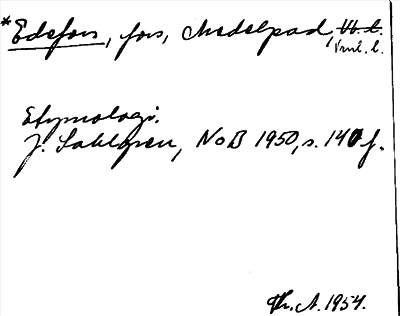 *Edefors, fors, Medelpad, V. l.
Vnl. l.
Etymologi.
J. Sahlgren, NoB 1950, s. 140 f.
Th. A. 1954.